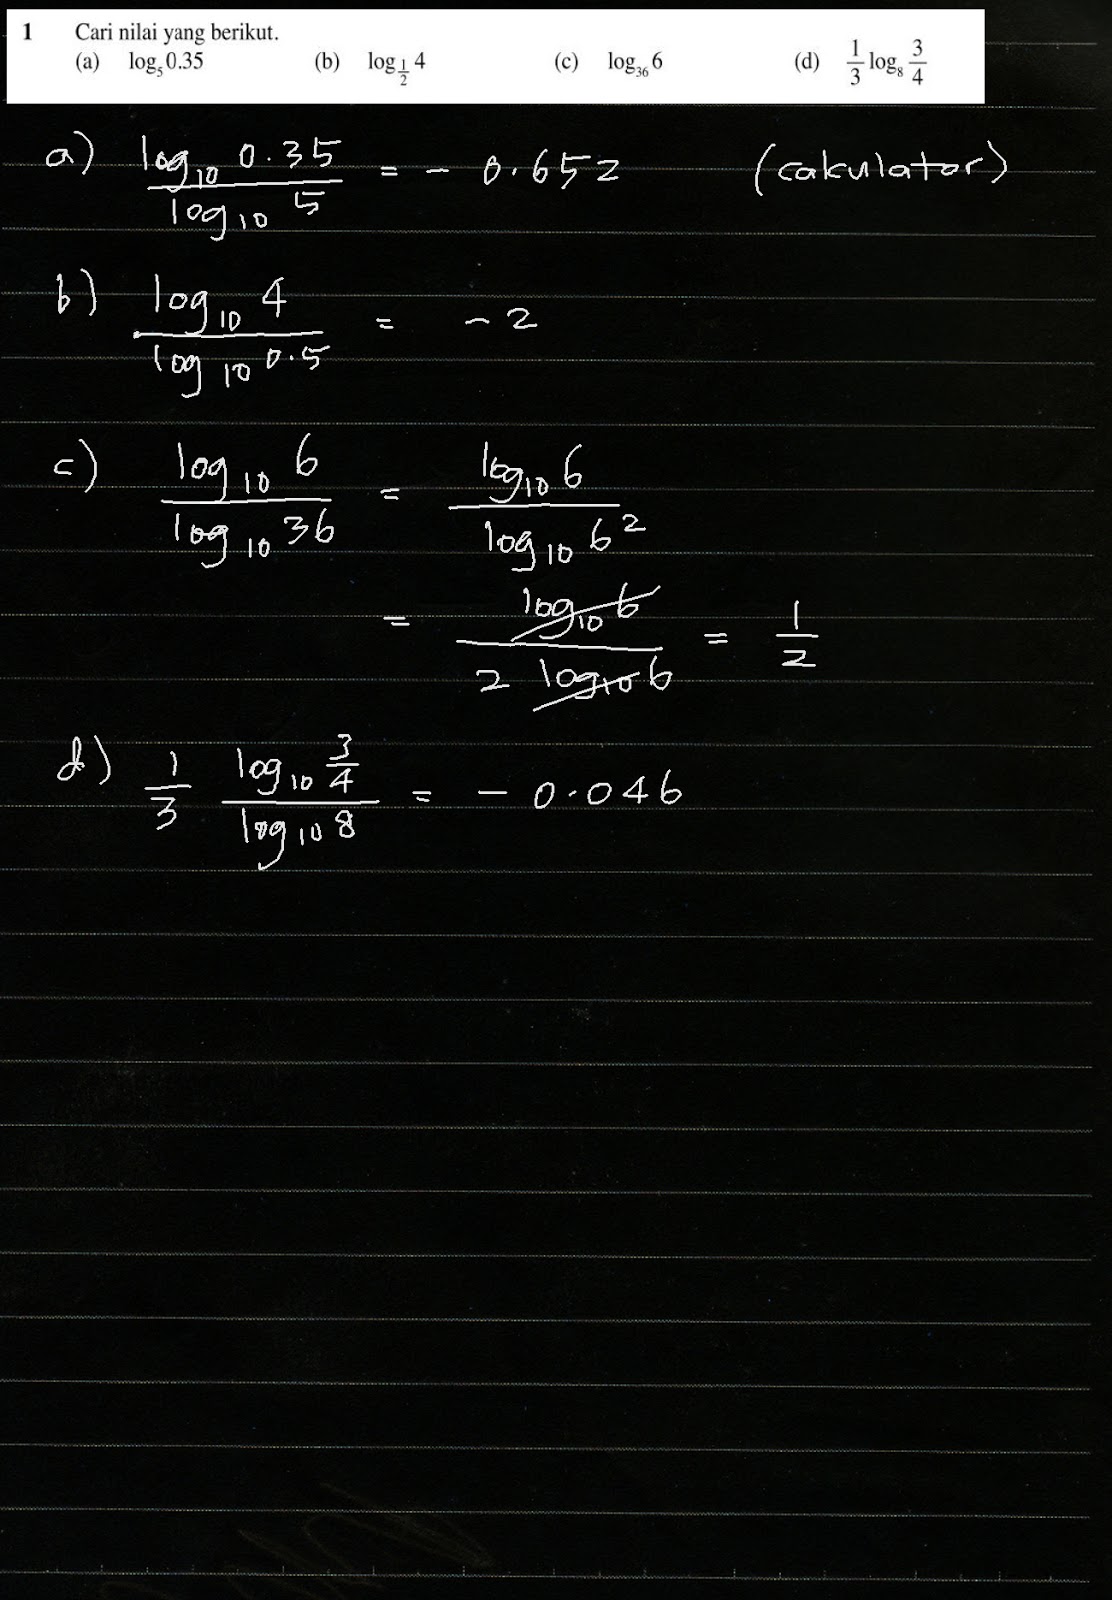 1 Cari nilai yang berikut.
(a) log₅ 0.35 (b) log_{1/2} 4 (c) log₃₆ 6 (d) 1/3 log₈ 3/4
a) log₁₀ 0.35 / log₁₀ 5 = - 0.652 (calculator)
b) log₁₀ 4 / log₁₀ 0.5 = - 2
c) log₁₀ 6 / log₁₀ 36 = log₁₀ 6 / log₁₀ 6²
= log₁₀ 6 / 2 log₁₀ 6 = 1/2
d) 1/3 log₁₀ 3/4 / log₁₀ 8 = - 0.046